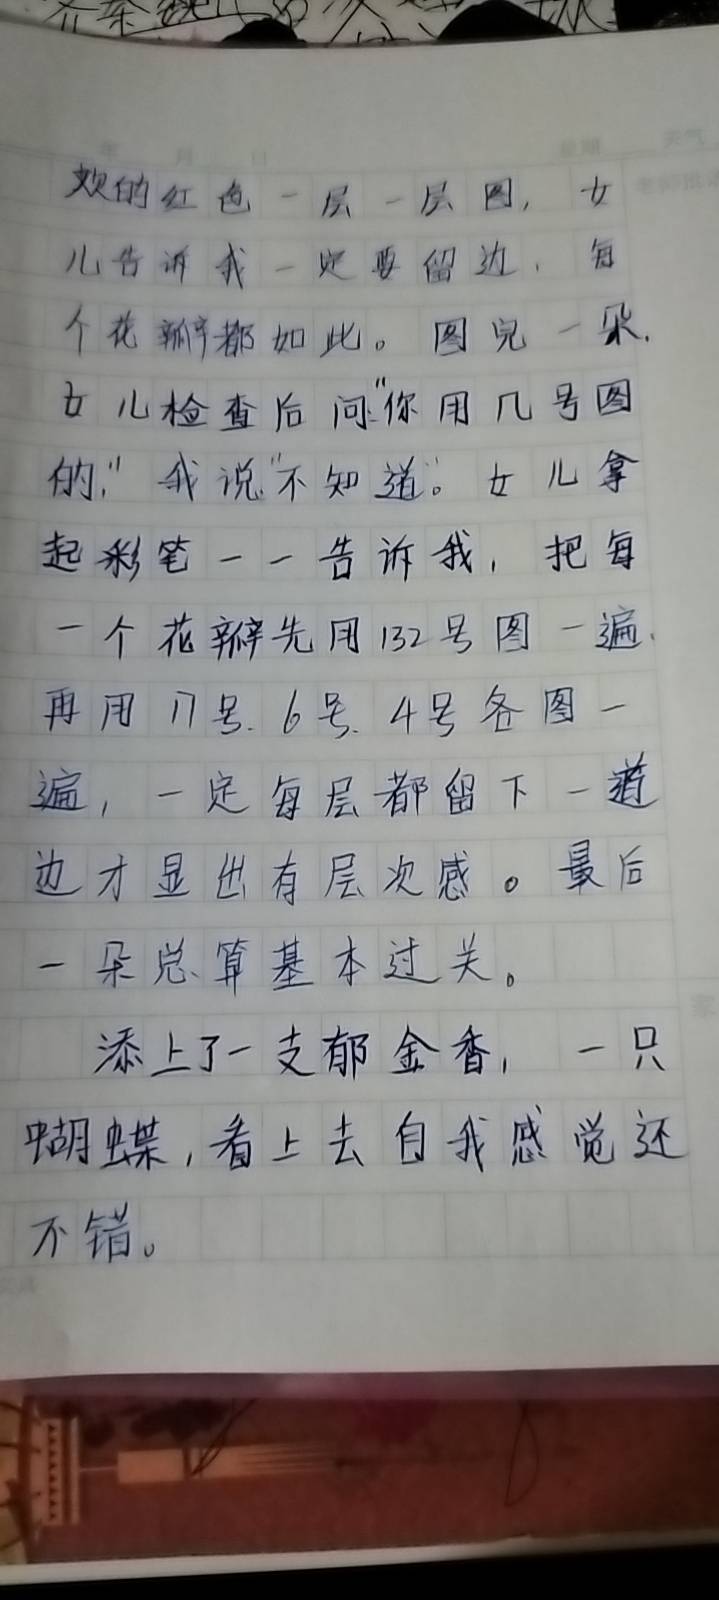 欢的红色一层一层图，女
儿告诉我一定要留边，每
个花瓣都如此。图完一朵，
女儿检查后问:“你用几号图
的，”我说“不知道”。女儿拿
起彩笔一一告诉我，把每
一个花瓣先用132号图一遍，
再用17号、6号、4号各图一
遍，一定每层都留下一道
边才显出有层次感。最后
一朵总算基本过关。
添上了一支郁金香，一只
蝴蝶，看上去自我感觉还
不错。